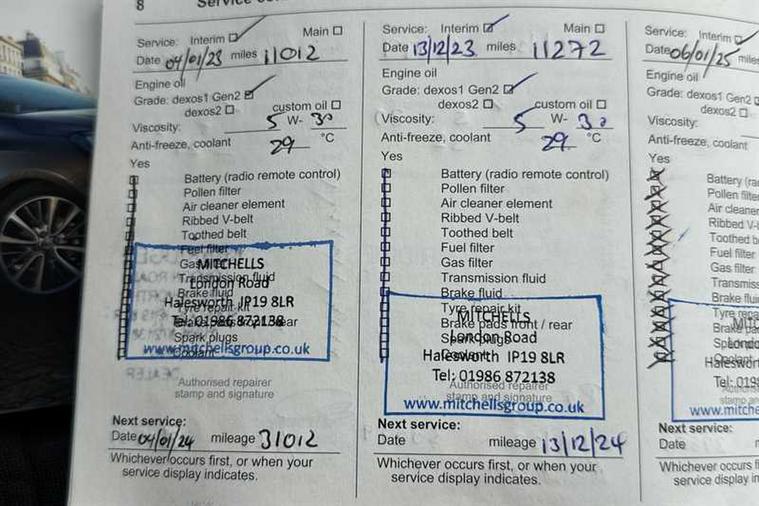 8
Service: Interim Main
Date 04/01/23 miles 11012
Engine oil
Grade: dexos1 Gen2
dexos2 custom oil
Viscosity: 5 W- 30
Anti-freeze, coolant 29 °C
Yes
Battery (radio remote control)
Pollen filter
Air cleaner element
Ribbed V-belt
Toothed belt
Fuel filter
Gas filter
Transmission fluid
Brake fluid
Tyre repair kit
Brake pads front / rear
Spark plugs
Coolant
MITCHELLS
London Road
Halesworth IP19 8LR
Tel: 01986 872138
www.mitchellsgroup.co.uk
Authorised repairer
stamp and signature
Next service:
Date 04/01/24 mileage 31012
Whichever occurs first, or when your
service display indicates.
Service: Interim Main
Date 13/12/23 miles 11272
Engine oil
Grade: dexos1 Gen2
dexos2 custom oil
Viscosity: 5 W- 30
Anti-freeze, coolant 29 °C
Yes
Battery (radio remote control)
Pollen filter
Air cleaner element
Ribbed V-belt
Toothed belt
Fuel filter
Gas filter
Transmission fluid
Brake fluid
Tyre repair kit
Brake pads front / rear
Spark plugs
Coolant
MITCHELLS
London Road
Halesworth IP19 8LR
Tel: 01986 872138
www.mitchellsgroup.co.uk
Authorised repairer
stamp and signature
Next service:
Date mileage 13/12/24
Whichever occurs first, or when your
service display indicates.
Service: Interim
Date 06/01/25 miles
Engine oil
Grade: dexos1 Gen2
dexos2
Viscosity:
Anti-freeze, coolant
Yes
Battery (ra
Pollen filte
Air cleaner
Ribbed V-
Toothed b
Fuel filter
Gas filter
Transmiss
Brake flui
Tyre repa
Brake pa
Coolant
Londo
Halesworth
Tel: 019
www.mitche
Next service:
Date
Whichever occurs fi
service display in